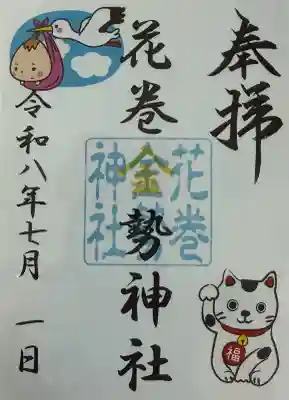 奉拝
花巻金勢神社
花巻
金勢
神社
令和八年七月一日
福